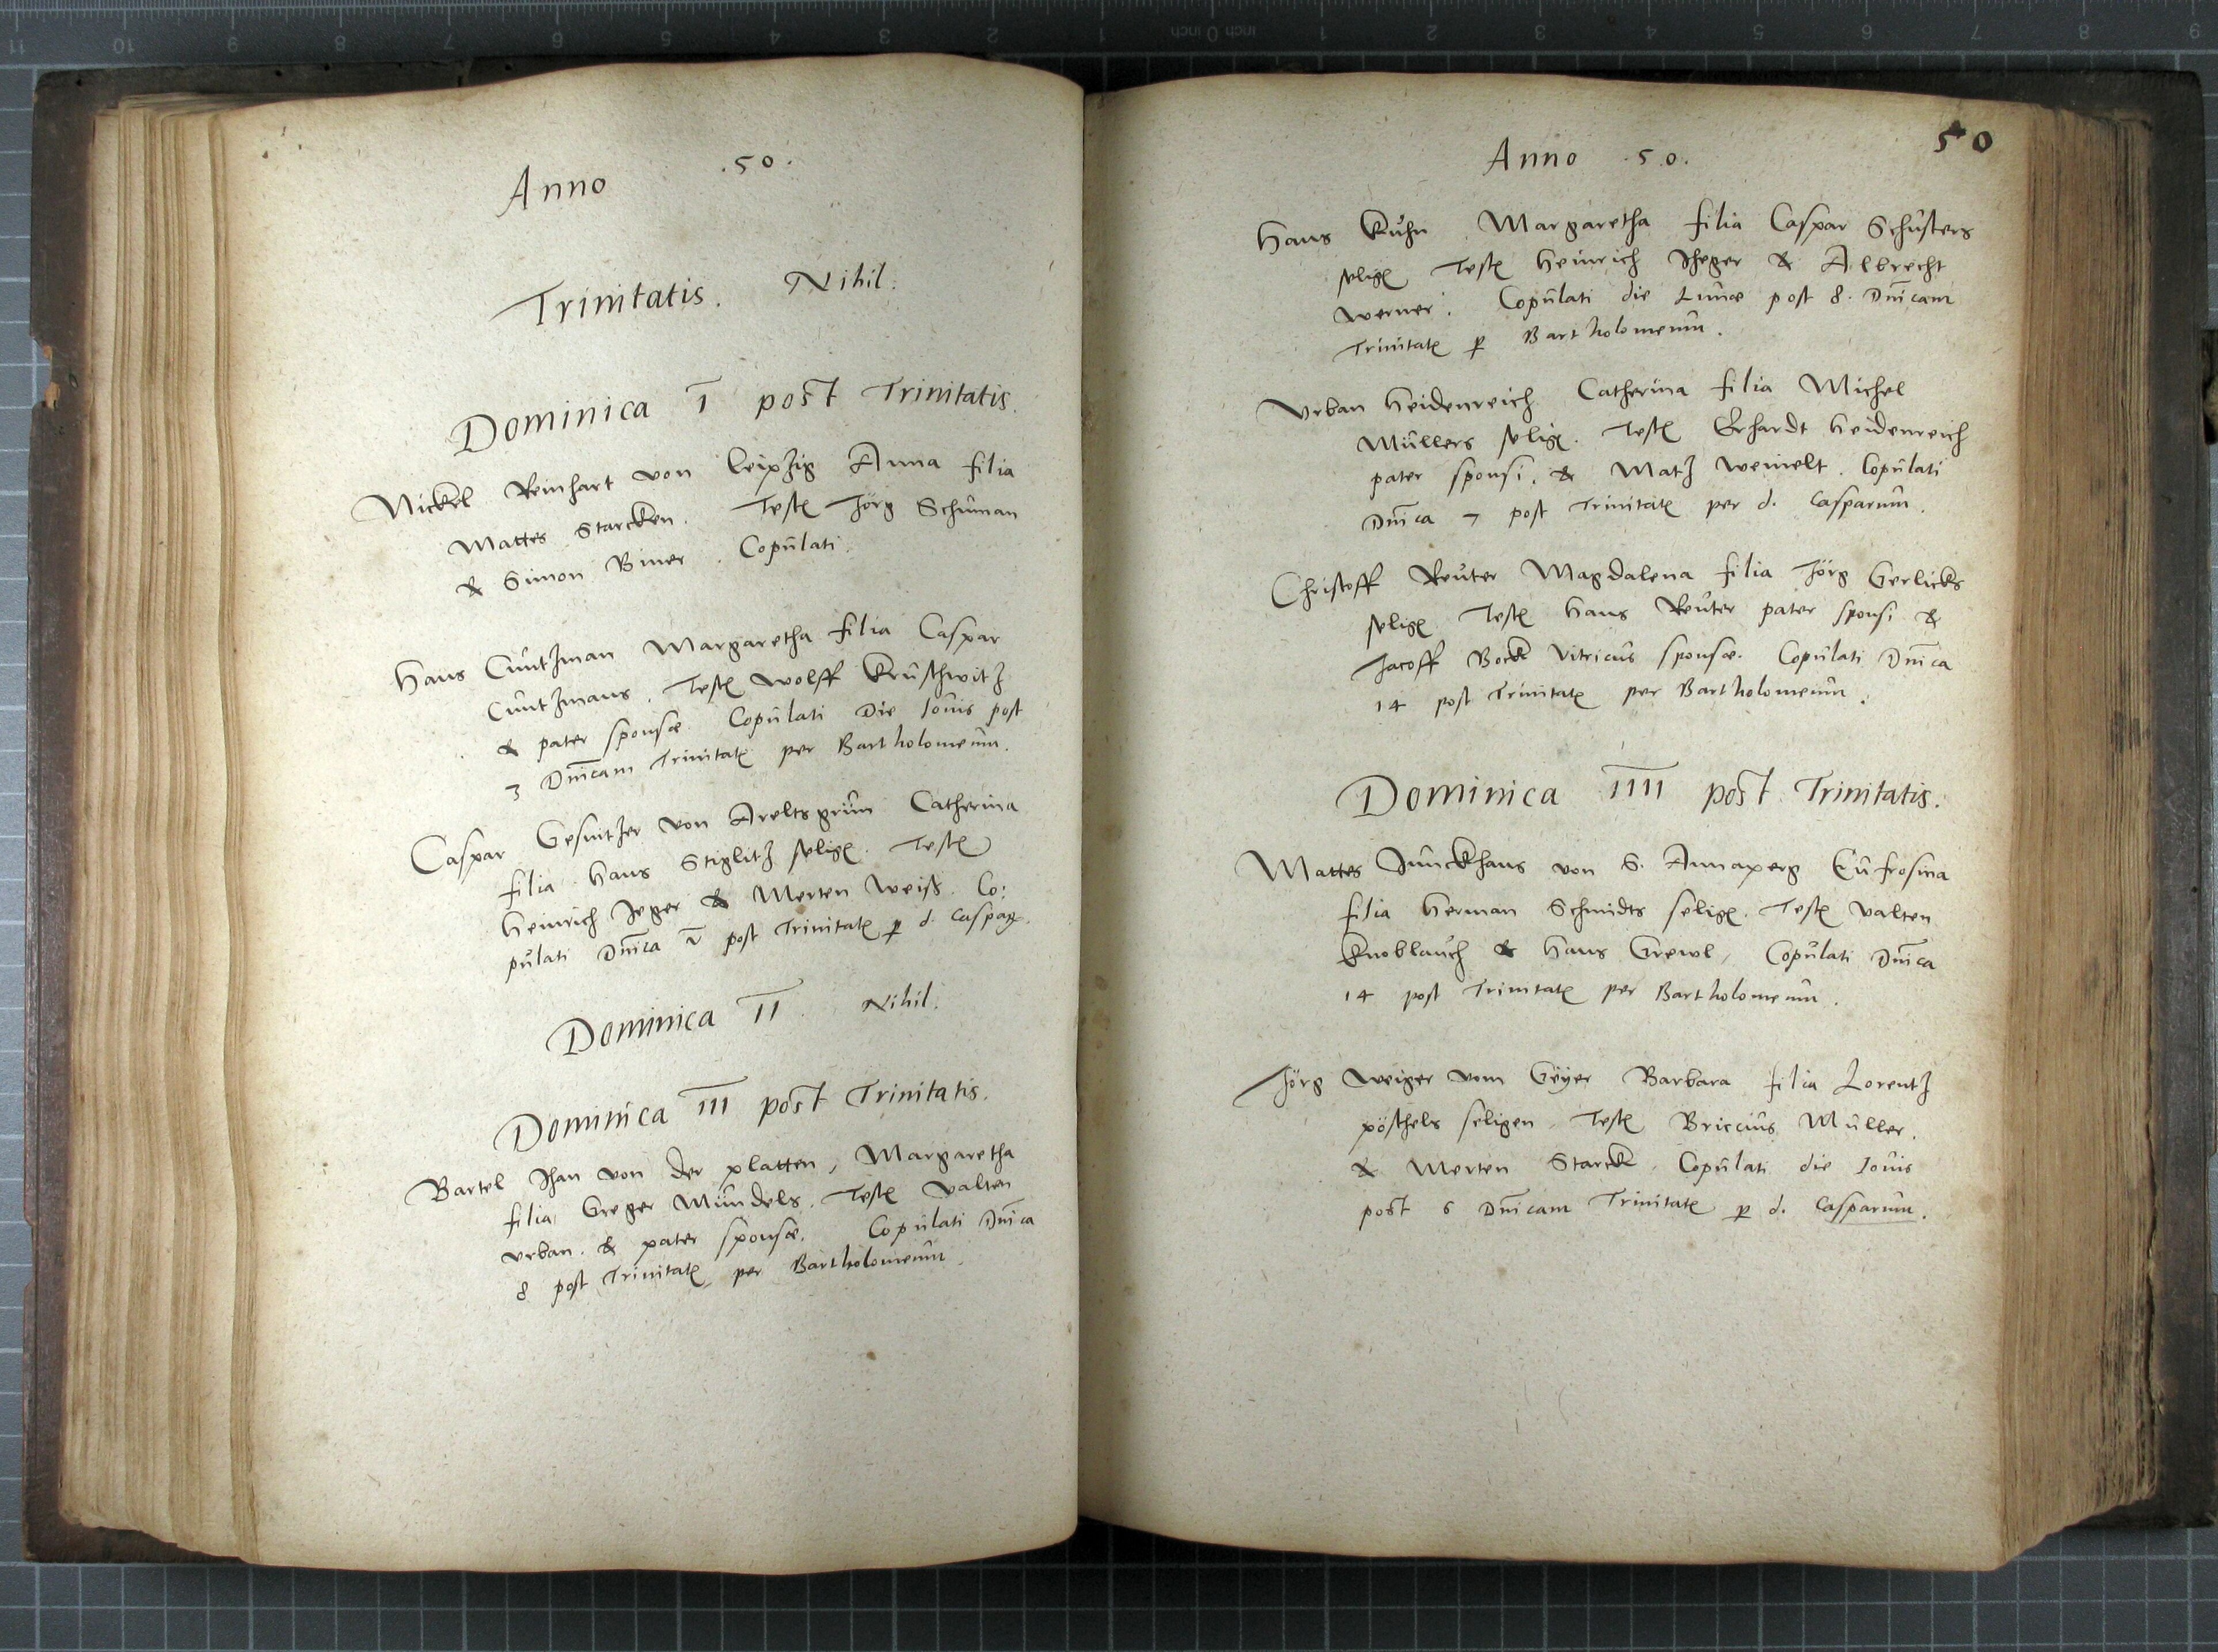 Anno .50.
Trinitatis. Nihil.
Dominica I post Trinitatis.
Nickel Reinhart von Leipzig Anna filia
Mattes Starcken. Testes Jörg Schuman
& Simon Biner. Copulati.
Hans Cuntzman Margaretha filia Caspar
Cuntzmans. Testes Wolff
& pater sponsæ. Copulati Die Iovis post
3 Dnicam Trinitatis per Bartholomeum.
Caspar von Catherina
filia Hans Stiglitz seligen. Testes
Heinrich Jeger & Merten Weiß. Co:
pulati Dnica post Trinitatis p d. Caspar.
Dominica II. Nihil.
Dominica III post Trinitatis.
Bartel Jhan von der platten, Margaretha
filia Greger Mündels. Testes Valten
Urban. & pater sponsæ. Copulati Dnica
8 post Trinitatis per Bartholomeum.
Anno .50.
50
Hans Kuhn. Margaretha filia Caspar Schusters
seligen Testes Heinrich Jheger & Albrecht
Werner. Copulati die Lunæ post 8. Dnicam
Trinitatis p Bartholomeum.
Urban Heidenreich. Catherina filia Michel
Müllers seligen. Testes Erhardt Heidenreich
pater sponsi. & Matz Weinelt. Copulati
Dnica 7 post Trinitatis per d. Casparum.
Christoff Reuter Magdalena filia Jörg Gerlicks
seligen Testes Hans Reuter pater sponsi &
Jacoff Bock Vitricus sponsæ. Copulati Dnica
14 post Trinitatis per Bartholomeum.
Dominica IIII post Trinitatis.
Mattes Junckhans von S. Annaperg Eufrosina
filia Herman Schmidts seligen. Testes Valten
Knoblauch & Hans Grewl, Copulati Dnica
14 post Trinitatis per Bartholomeum.
Jörg Weiger vom Geÿer Barbara filia Lorentz
pöschels seligen, Testes Briccius Müller.
& Merten Starck. Copulati die Iovis
post 6 Dnicam Trinitatis p d. Casparum.